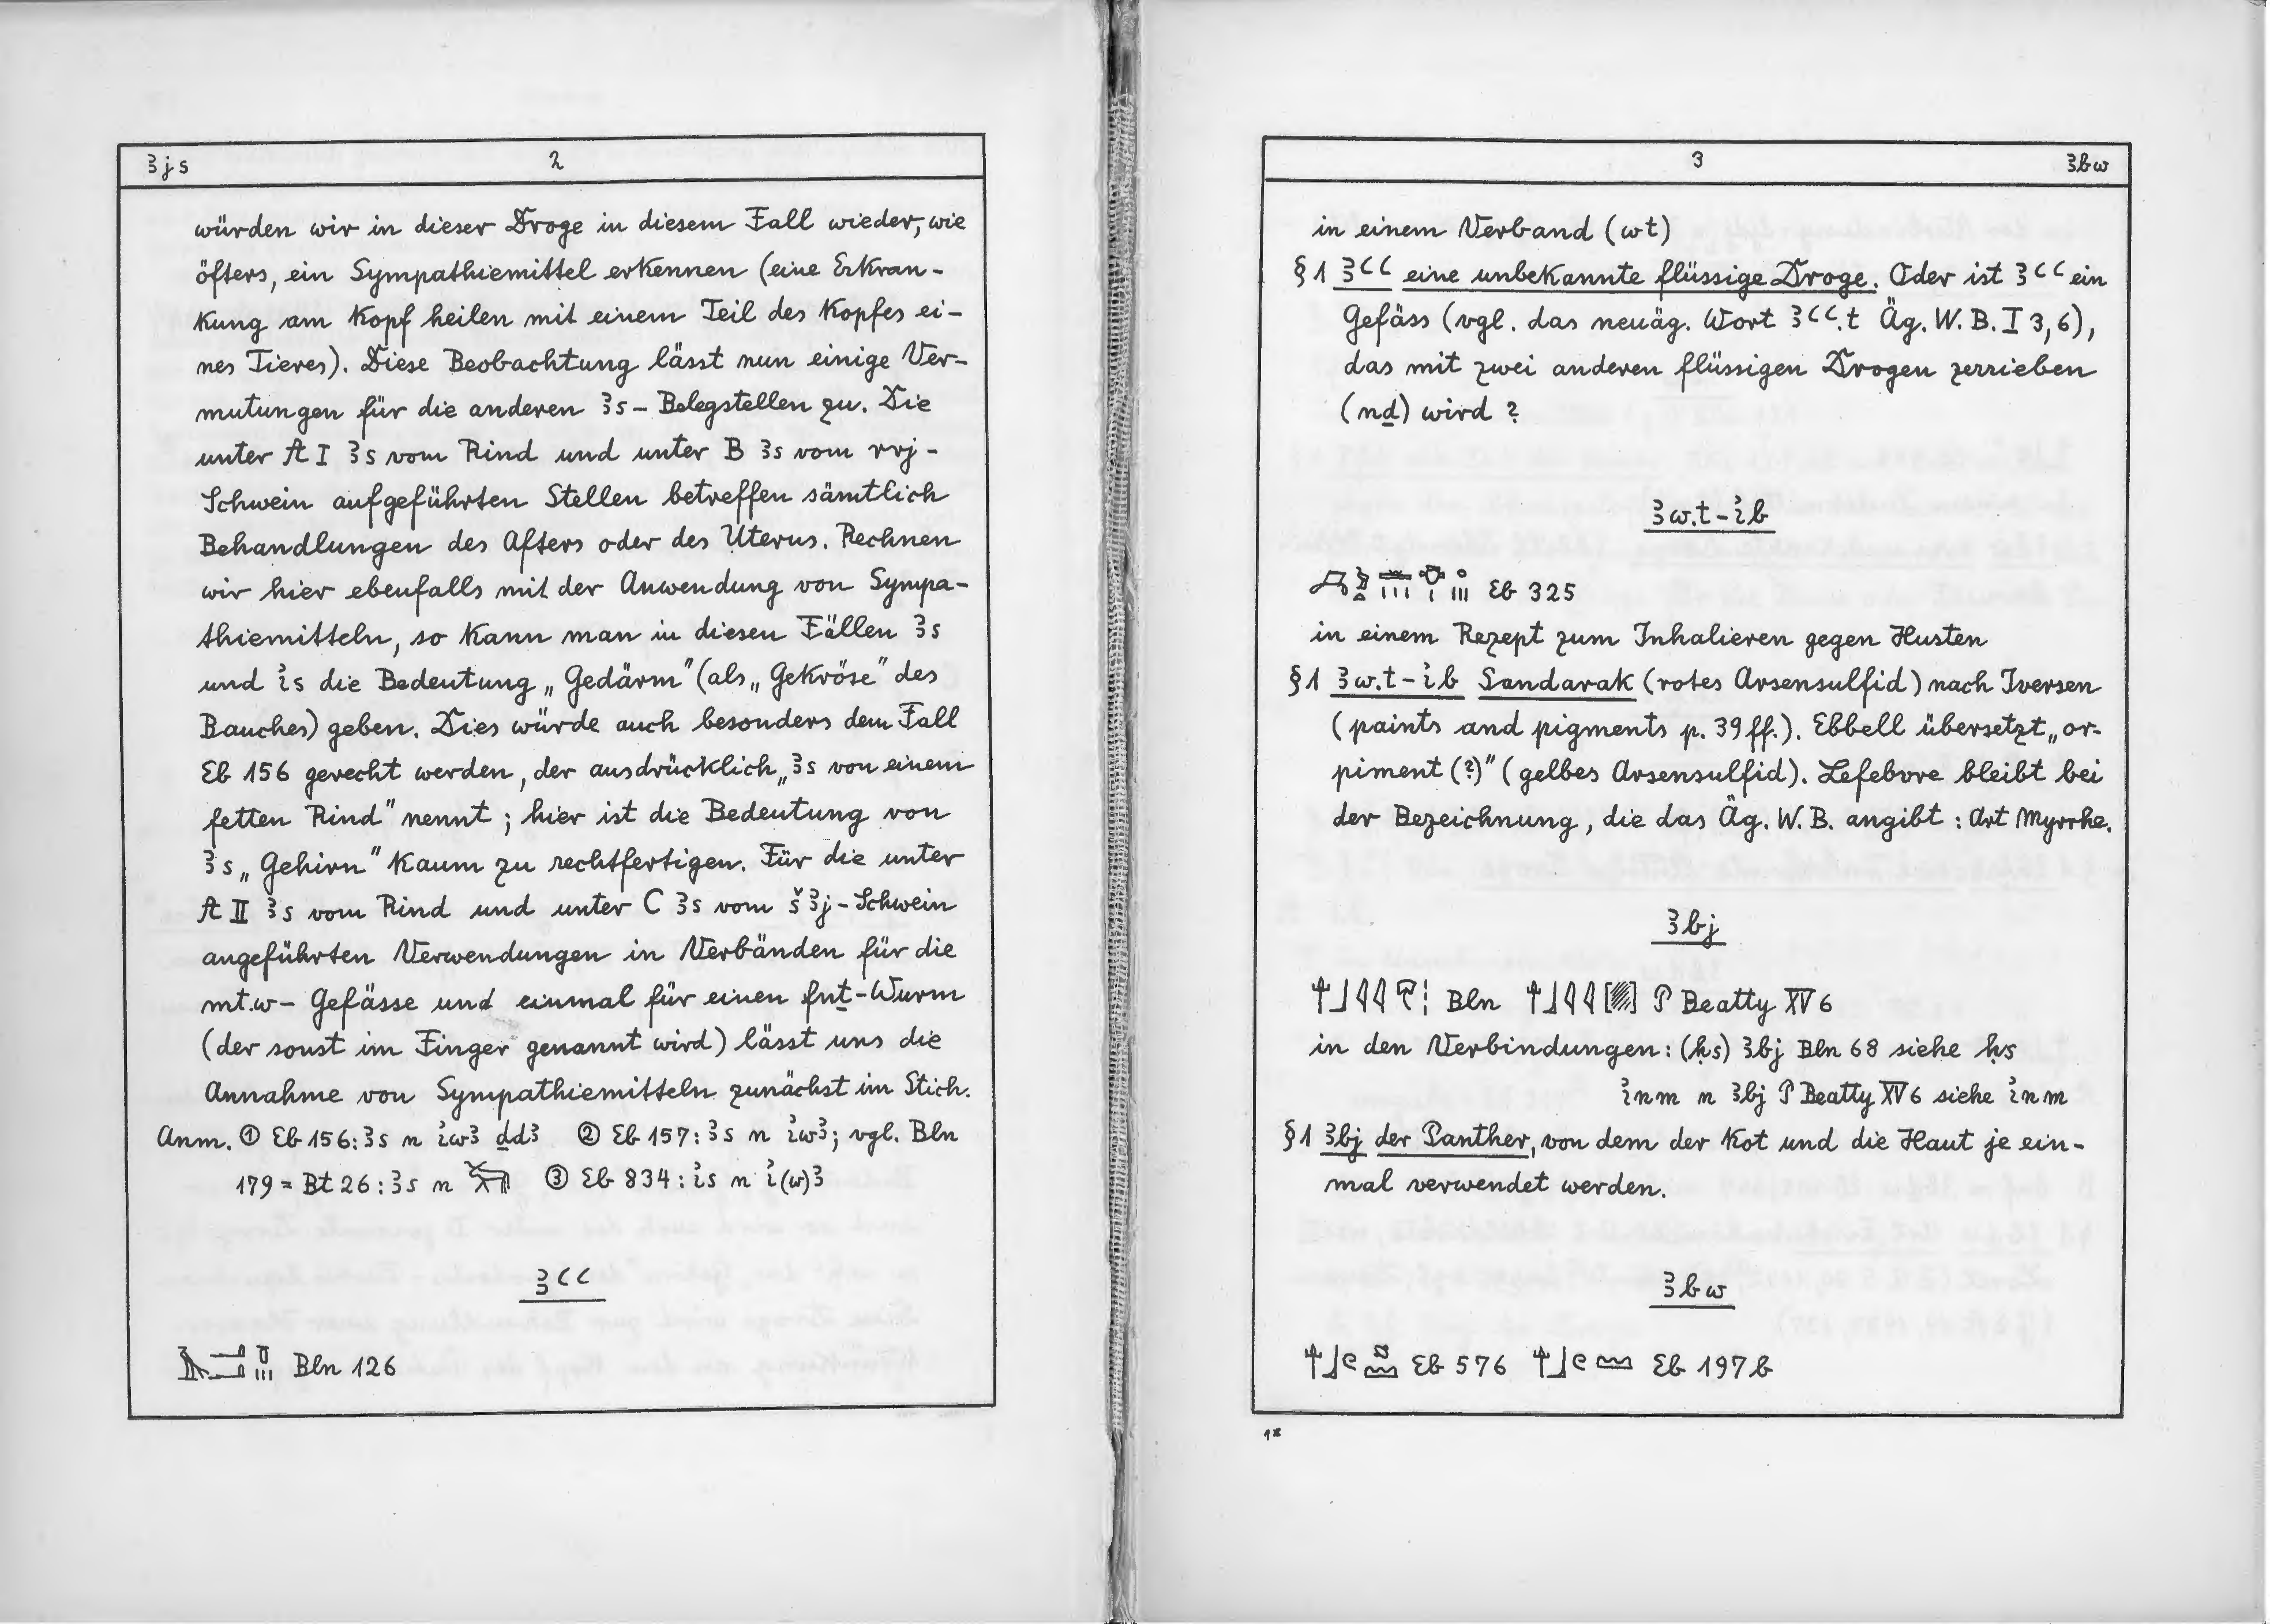 ꜣjs 2
würden wir in dieser Droge in diesem Fall wieder, wie
öfters, ein Sympathiemittel erkennen (eine Erkran-
kung am Kopf heilen mit einem Teil des Kopfes ei-
nes Tieres). Diese Beobachtung lässt nun einige Ver-
mutungen für die anderen ꜣs-Belegstellen zu. Die
unter A I ꜣs vom Rind und unter B ꜣs vom rrj-
Schwein aufgeführten Stellen betreffen sämtlich
Behandlungen des Afters oder des Uterus. Rechnen
wir hier ebenfalls mit der Anwendung von Sympa-
thiemitteln, so kann man in diesen Fällen ꜣs
und ı͗s die Bedeutung „Gedärm" (als „Gekröse" des
Bauches) geben. Dies würde auch besonders dem Fall
Eb 156 gerecht werden, der ausdrücklich „ꜣs von einem
fetten Rind" nennt; hier ist die Bedeutung von
ꜣs „Gehirn" kaum zu rechtfertigen. Für die unter
A II ꜣs vom Rind und unter C ꜣs vom šꜣj-Schwein
angeführten Verwendungen in Verbänden für die
mt.w-Gefässe und einmal für einen fnṯ-Wurm
(der sonst im Finger genannt wird) lässt uns die
Annahme von Sympathiemitteln zunächst im Stich.
Anm. ① Eb 156: ꜣs n ı͗wꜣ ḏdꜣ ② Eb 157: ꜣs n ı͗wꜣ; vgl. Bln
179 = Bt 26: ꜣs n ③ Eb 834: ı͗s n ı͗(w)ꜣ
ꜣꜥꜥ
Bln 126
3 ꜣbw
in einem Verband (wt)
§1 ꜣꜥꜥ eine unbekannte flüssige Droge. Oder ist ꜣꜥꜥ ein
Gefäss (vgl. das neuäg. Wort ꜣꜥꜥ.t Äg. W. B. I 3,6),
das mit zwei anderen flüssigen Drogen zerrieben
(nḏ) wird?
ꜣw.t-ı͗b
Eb 325
in einem Rezept zum Inhalieren gegen Husten
§1 ꜣw.t-ı͗b Sandarak (rotes Arsensulfid) nach Iversen
(paints and pigments p. 39 ff.). Ebbell übersetzt „or-
piment (?)" (gelbes Arsensulfid). Lefebvre bleibt bei
der Bezeichnung, die das Äg. W. B. angibt: Art Myrrhe.
ꜣbj
Bln P Beatty XV 6
in den Verbindungen: (ḥs) ꜣbj Bln 68 siehe ḥs
ı͗nm n ꜣbj P Beatty XV 6 siehe ı͗nm
§1 ꜣbj der Panther, von dem der Kot und die Haut je ein-
mal verwendet werden.
ꜣbw
Eb 576 Eb 197 b
1*